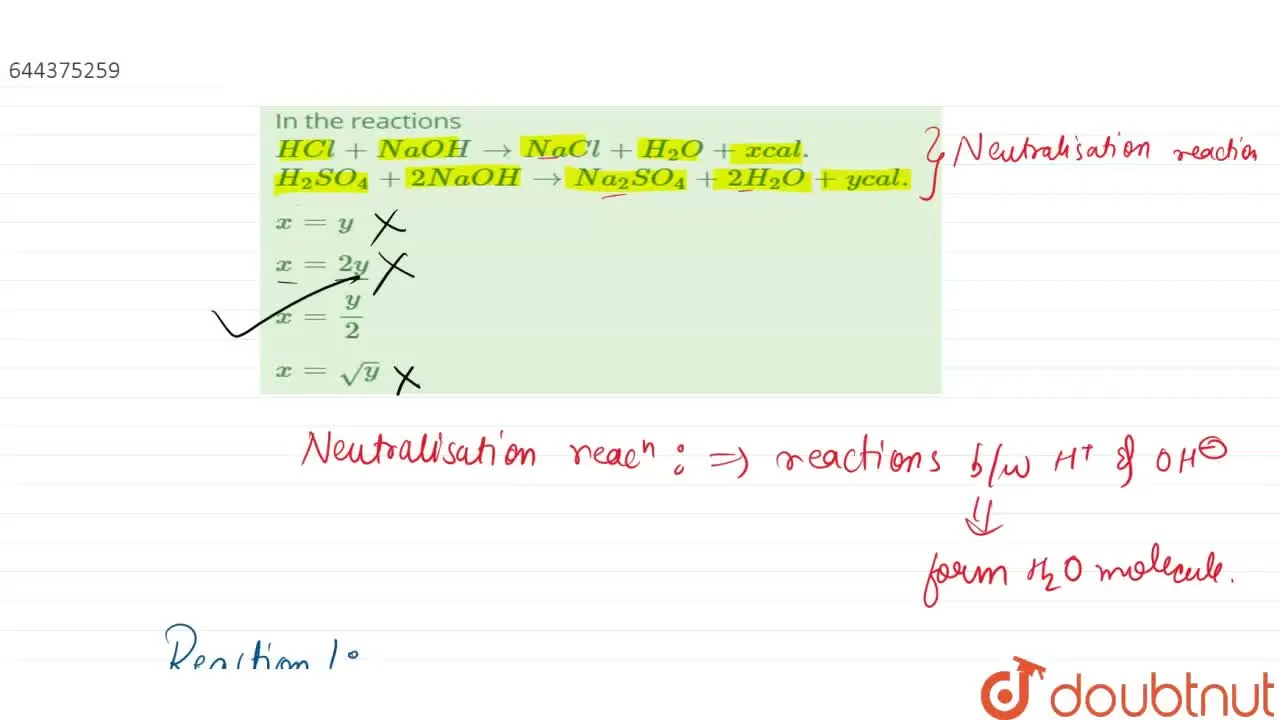 644375259
In the reactions
HCl + NaOH → NaCl + H₂O + xcal.
H₂SO₄ + 2NaOH → Na₂SO₄ + 2H₂O + ycal.
} Neutralisation reaction
x = y
x = 2y
x = y/2
x = √y
Neutralisation reacⁿ : ⇒ reactions b/w H⁺ & OH⊖
⇓
form H₂O molecule.
Reaction 1:
doubtnut